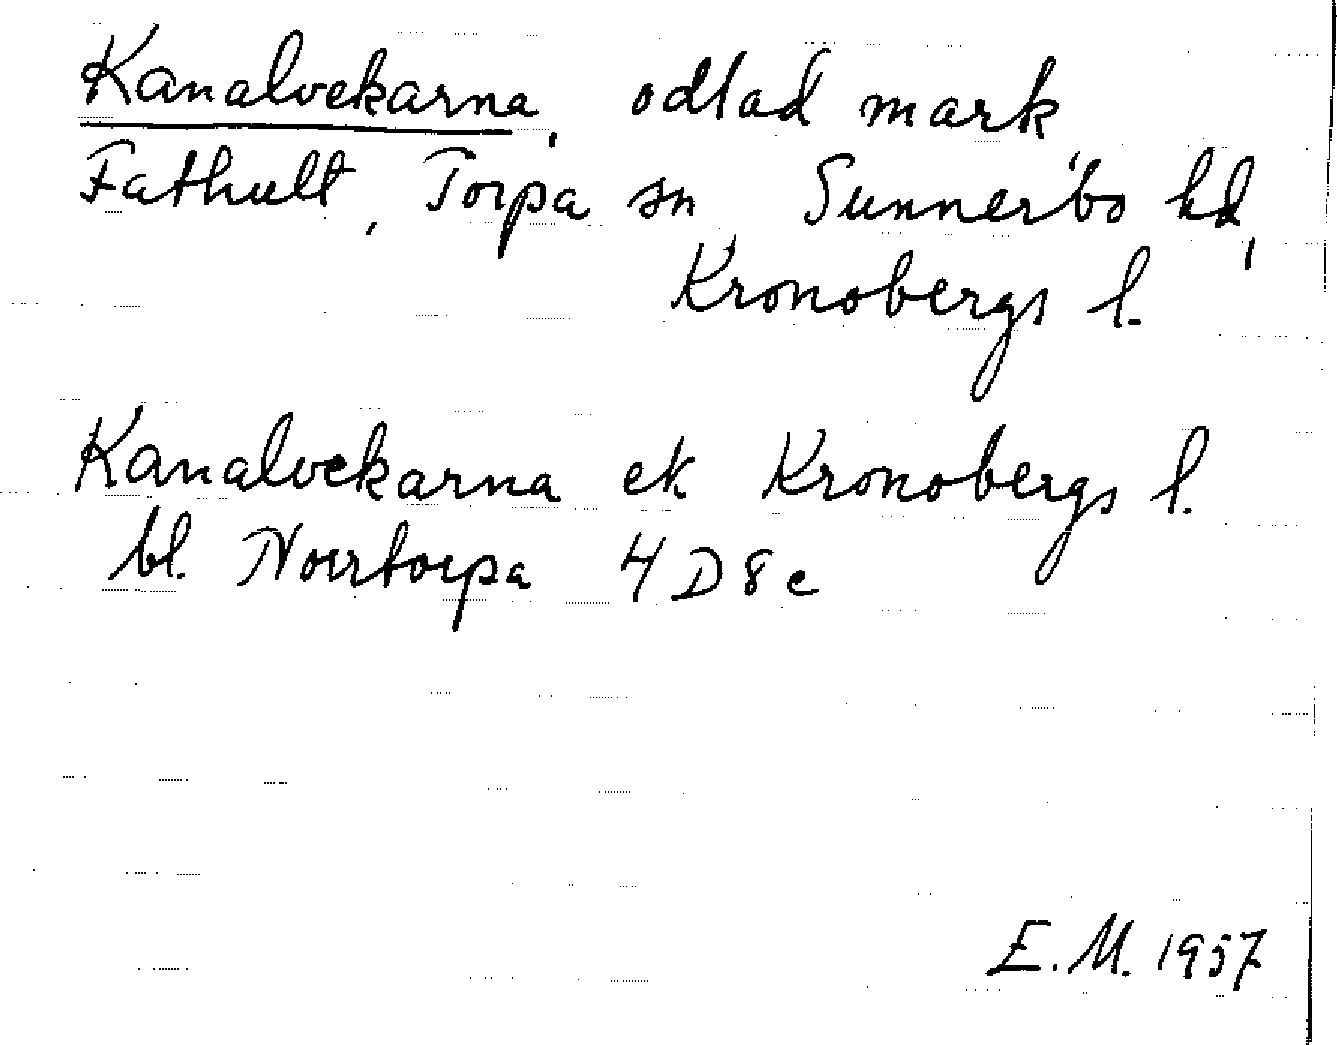 Kanalvekarna, odlad mark,
Fathult, Torpa sn Sunnerbo hd,
Kronobergs l.
Kanalvekarna ek Kronobergs l.
bl. Norrtorpa 4D8e
E.M. 1957